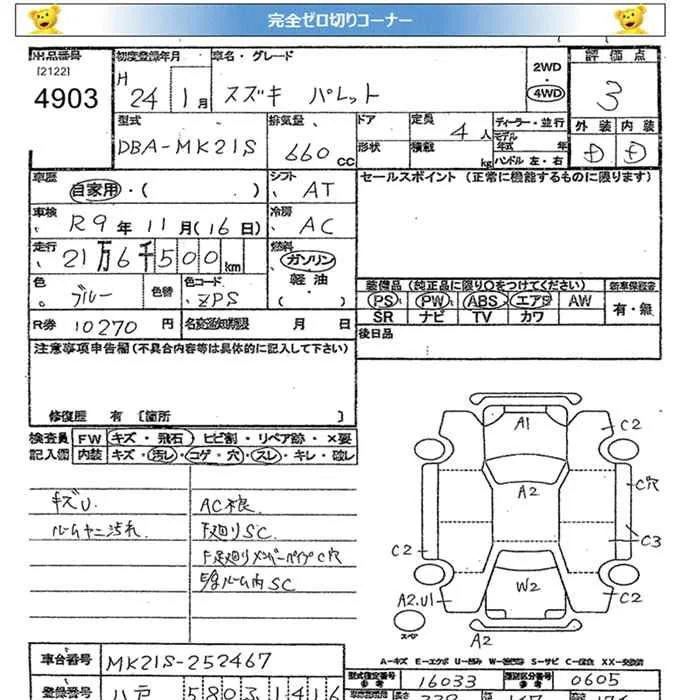 完全ゼロ切りコーナー
出品番号
[2122]
4903
初度登録年月
H 24 1月
車名・グレード
スズキ パレット
2WD
4WD
評価点
3
外装 内装
D D
型式
DBA-MK21S
排気量
660 cc
ドア
形状
定員 4人
積載 kg
ディーラー・並行
モデル年式 年
ハンドル 左・右
車歴
自家用・( )
シフト
AT
セールスポイント (正常に機能するものに限ります)
車検
R9年 11月(16日)
冷房
AC
走行
21万6千500km
燃料
ガソリン
軽油
・( )
色
ブルー
色替
色コード
ZPS
装備品 (純正品に限り○をつけてください)
新車保証書
PS PW ABS エアB AW
SR ナビ TV カワ
有・無
R券 10270円
名変通知期限 月 日
後日品
注意事項申告欄(不具合内容等は具体的に記入して下さい)
修復歴 有 [箇所 ]
検査員 FW キズ・飛石 ヒビ割・リペア跡・×要
記入欄 内装 キズ・汚レ・コゲ・穴・スレ・キレ・破レ
キズU.
AC不良
ルームヤニ汚れ
下廻りSC
下足廻りメンバーパイプC穴
SC
A1
C2
A2
C穴
C3
C2
W2
C2
A2.U1
スペア
A2
A-キズ E-エクボ U-凹み W-波形 S-サビ C-腐食 XX-交換済
車台番号 MK21S-252467
型式指定番号 16033
類別区分番号 0605
登録番号 八戸 580 3 1416